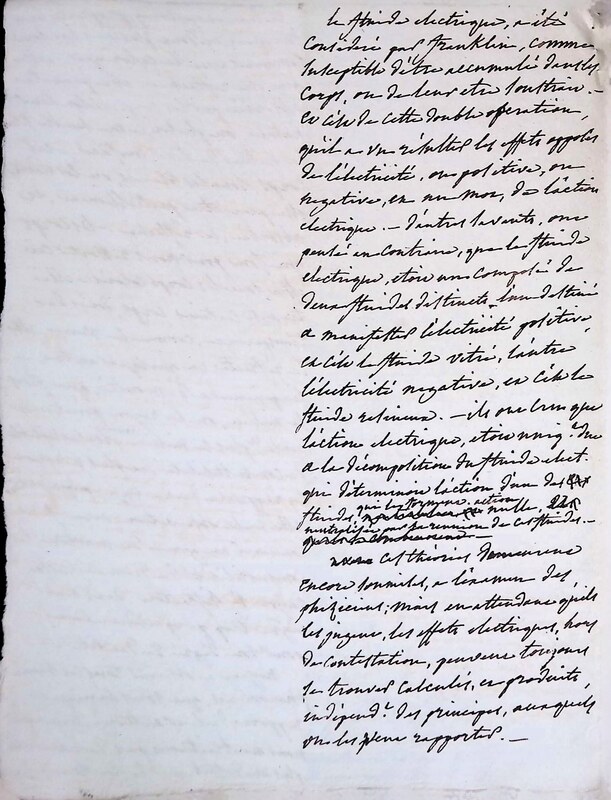 le fluide electrique, a été
Considéré par franklin, comme
susceptible d'être accumulé dans les
Corps, ou de leur etre soustrait. —
et c'est de cette double opération,
qu'il a vu résulter les effets opposés
de l'électricité, ou positive, ou
negative, en un mot, de l'action
electrique. — d'autres savants, ont
pensé au Contraire, que le fluide
electrique, etoit un Composé de
deux fluides distincts, l'un destiné
a manifester l'électricité positive,
et c'est le fluide vitré, l'autre
l'électricité negative, et c'est le
fluide resineux. — ils ont cru que
l'action electrique, etoit uniq.t due
a la décomposition du fluide elect.
qui déterminoit l'action d'un des
fluides, qui les forment, action nulle,
neutralisée par la reunion de ces fluides. —
ces théories demeurent
Encore soumises, a l'examen des
phisiciens; mais en attendant qu'ils
les jugent, les effets electriques, hors
de Contestation, peuvent toujours
se trouver Calculés, et produits,
indépend.t des principes, auxquels
on les peut rapporter. —